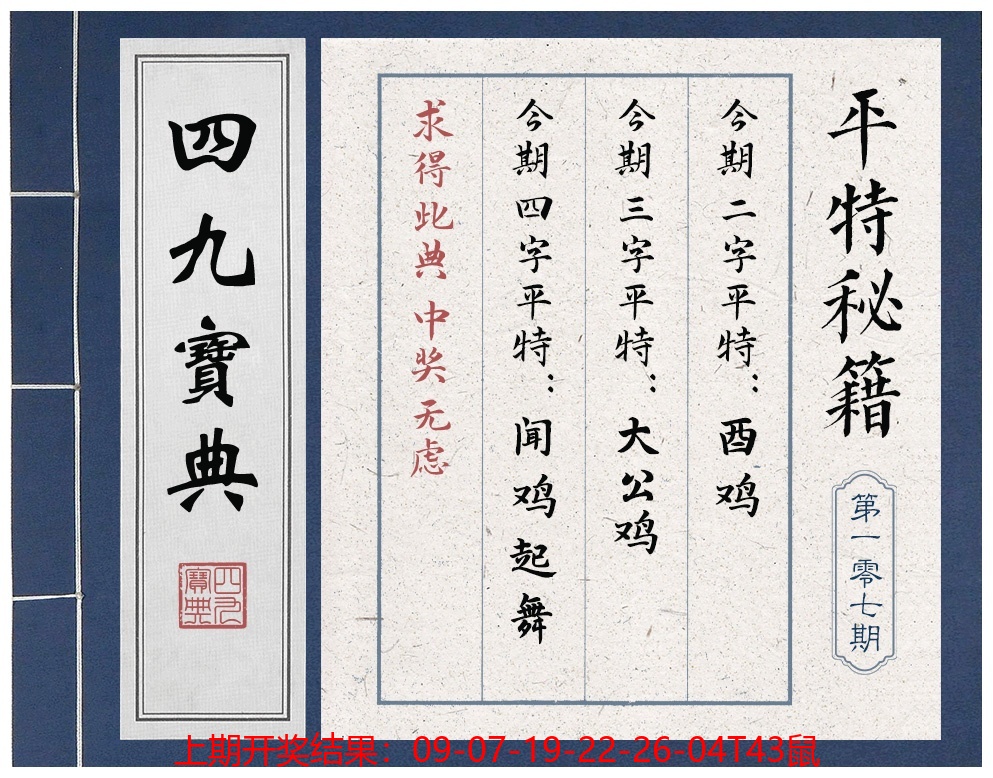 平特秘籍
第一零七期
今期二字平特：酉鸡
今期三字平特：大公鸡
今期四字平特：闻鸡起舞
求得此典 中奖无虑
四九寶典
四九寶典
上期开奖结果：09-07-19-22-26-04T43鼠